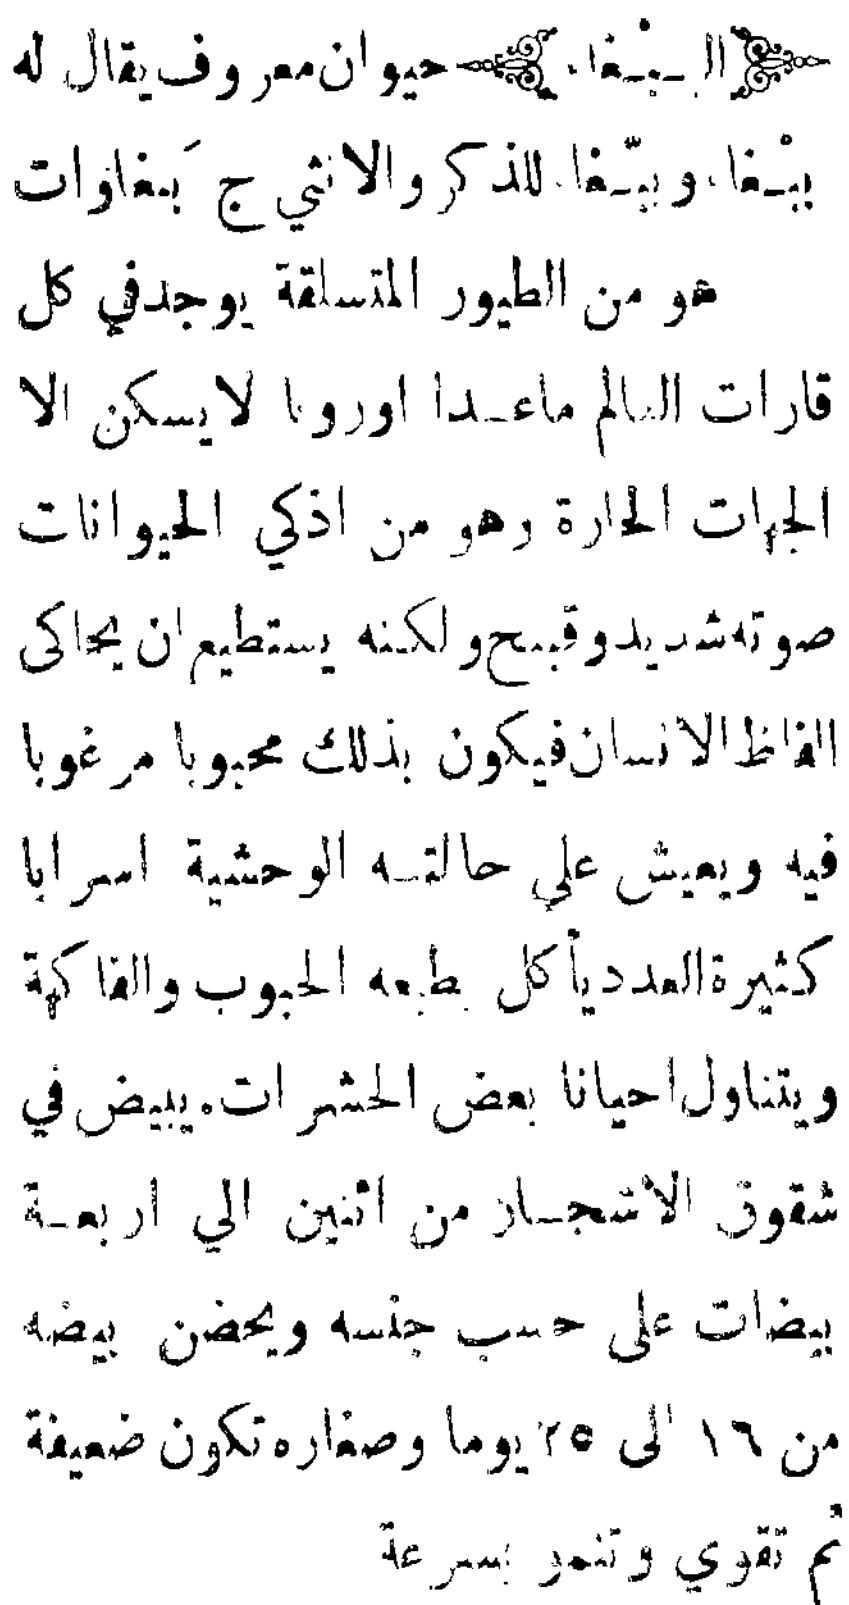 ﴿ الببْغاء ﴾ حيوان معروف يقال له
ببْغاء وببّغاء للذكر والانثي ج بَبغاوات
هو من الطيور المتسلقة يوجد في كل
قارات العالم ماعدا اوروبا لايسكن الا
الجهات الحارة وهو من اذكي الحيوانات
صوته شديد وقبيح ولكنه يستطيع ان يحاكى
الفاظ الانسان فيكون بذلك محبوبا مرغوبا
فيه ويعيش علي حالته الوحشية اسرابا
كثيرة العدد يأكل بطبعه الحبوب والفاكهة
ويتناول احيانا بعض الحشرات. يبيض في
شقوق الاشجار من اثنين الي اربعة
بيضات على حسب جنسه ويحضن بيضه
من ١٦ الى ٢٥ يوما وصغاره تكون ضعيفة
ثم تقوي وتنمو بسرعة